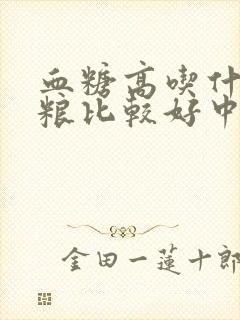 血糖高喫什
粮比較好中
金田一蓮十郎